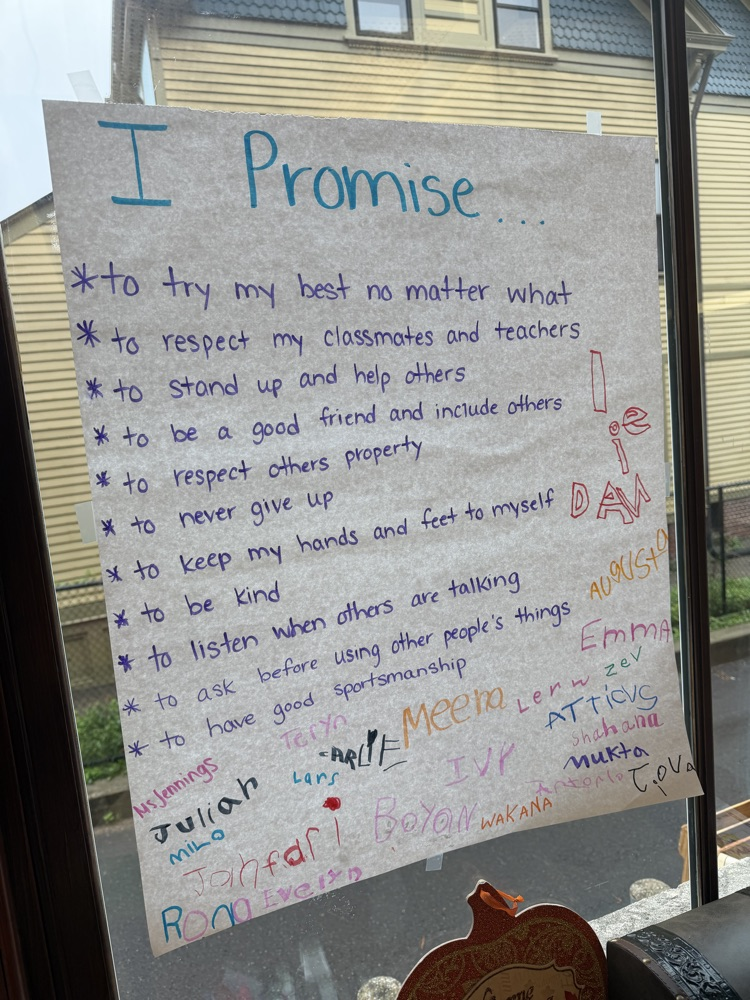 I Promise...
* to try my best no matter what
* to respect my classmates and teachers
* to stand up and help others
* to be a good friend and include others
* to respect others property
* to never give up
* to keep my hands and feet to myself
* to be kind
* to listen when others are talking
* to ask before using other people's things
* to have good sportsmanship
DAN
AUgUSTO
EmmA
zev
Lenw
ATTICUS
Meena
Teryn
shahana
Mukta
Antonio
IVY
Lars
MsJennings
Juliah
MiLO
Jahfari
Boyan
WAKANA
Rona
Evelyn